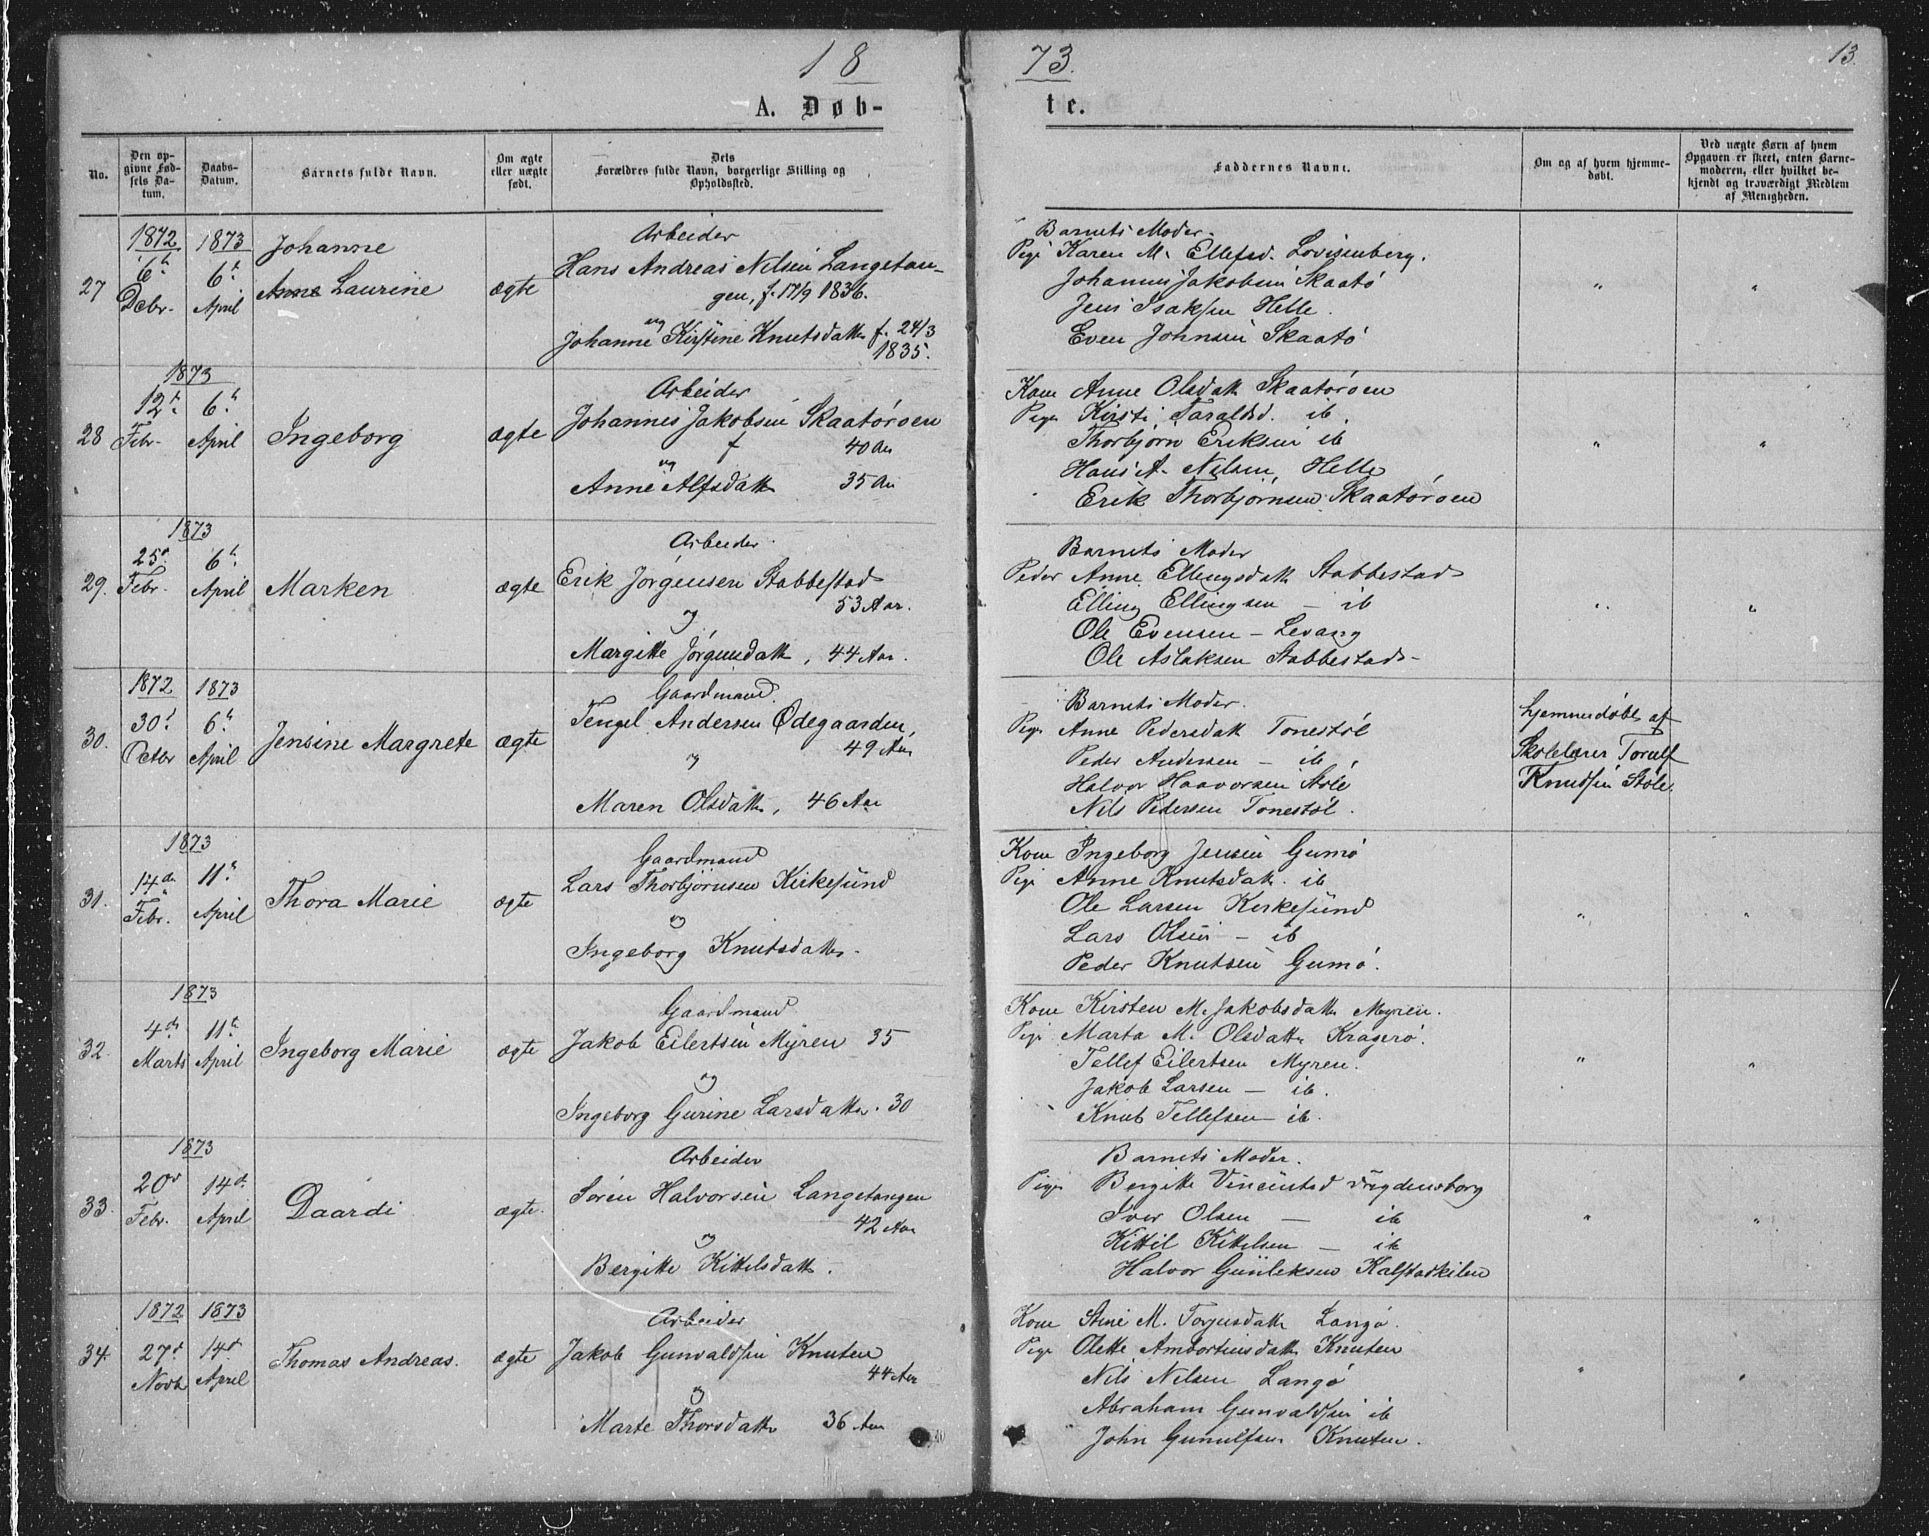 18 73. 13.
A. Døb- te.
No.
Den op-
givne Fød-
sels Da-
tum.
Daabs-
Datum.
Barnets fulde Navn.
Om ægte
eller uægte
født.
Dets
Forældres fulde Navn, borgerlige Stilling og
Opholdssted.
Faddernes Navne.
Om og af hvem hjemme-
døbt.
Ved uægte Børn af hvem
Opgaven er skeet, enten Barne-
moderen, eller hvilket be-
kjendt og troværdigt Medlem
af Menigheden.
27
1872
6te
Decbr.
1873
6te
April
Johanne
Anne Laurine
ægte
Arbeider
Hans Andreas Nilsen Langetan-
gen, f. 17/9 1836.
og
Johanne Kirstine Knutsdatter f. 24/3
1835.
Barnets Moder.
Pige Karen M. Ellefsd. Lovisenberg.
Johannes Jakobsen Skaatø
Jens Isaksen Helle.
Even Johnsen Skaatø
"
"
28
1873
12te
Febr.
6te
April
Ingeborg
ægte
Arbeider
Johannes Jakobsen Skaatørøen
f 40 Aar
og
Anne Alfsdatter 35 Aar
Kone Anne Olsdatter Skaatørøen
Pige Kirsti Taraldsd. ib.
Thorbjørn Eriksen ib
Hans A. Nilsen, Helle
Erik Thorbjørnsen Skaatørøen
"
"
29.
1873
25de
Febr.
6te
April
Marken
ægte
Arbeider
Erik Jørgensen Stabbestad
53 Aar.
og
Margitte Jørgensdatter, 44 Aar.
Barnets Moder
Peder Anne Ellingsdatter Stabbestad
Elling Ellingsen — ib
Ole Evensen – Levang
Ole Aslaksen Stabbestad
"
"
30.
1872
30te
Octbr
1873
6te
April
Jensine Margrete
ægte
Gaardmand
Tengel Andersen Ødegaarden,
49 Aar
og
Maren Olsdatter, 46 Aar
Barnets Moder.
Pige Anne Pedersdatter Tonestøl
Peder Andersen — ib
Halvor Haavorsen Støle
Nils Pedersen Tonestøl.
hjemmedøbt af
Skolelærer Torulf
Knudsen Støle.
31.
1873
14de
Febr.
11te
April
Thora Marie
ægte
Gaardmand
Lars Thorbjørnsen Kirkesund
og
Ingeborg Knutsdatter.
Kone Ingeborg Jensen Gumø
Pige Anne Knutsdatter. ib
Ole Larsen Kirkesund
Lars Olsen — ib
Peder Knutsen Gumø.
"
"
32.
1873
4de
Marts
11te
April
Ingeborg Marie
ægte
Gaardmand
Jakob Eilertsen Myren 35
og
Ingeborg Gurine Larsdatter. 30
Kone Kirsten M. Jakobsdatter Myren.
Pige Marta M. Olsdatter Kragerø.
Tellef Eilertsen Myren.
Jakob Larsen — ib.
Knut Tellefsen — ib.
"
"
33.
1873
20de
Febr.
14de
April
Daardi
ægte.
Arbeider
Søren Halvorsen Langetangen
42 Aar
og
Bergitte Kittelsdatter.
Barnets Moder.
Pige Bergitte
Iver Olsen — ib
Kittil Kittelsen — ib
Halvor Gunleksen Kalstadkilen
"
"
34.
1872
27de
Novbr
1873
14de
April
Thomas Andreas.
ægte
Arbeider
Jakob Gunvaldsen Knuten
44 Aar
og
Marte Thorsdatter 36 Aar
Kone Stine M. Torjusdatter Langø.
Pige Olette Ambortinsdatter Knuten
Nils Nilsen Langø
Abraham Gunvaldsen ib
John Gunulfsen Knuten.
"
"